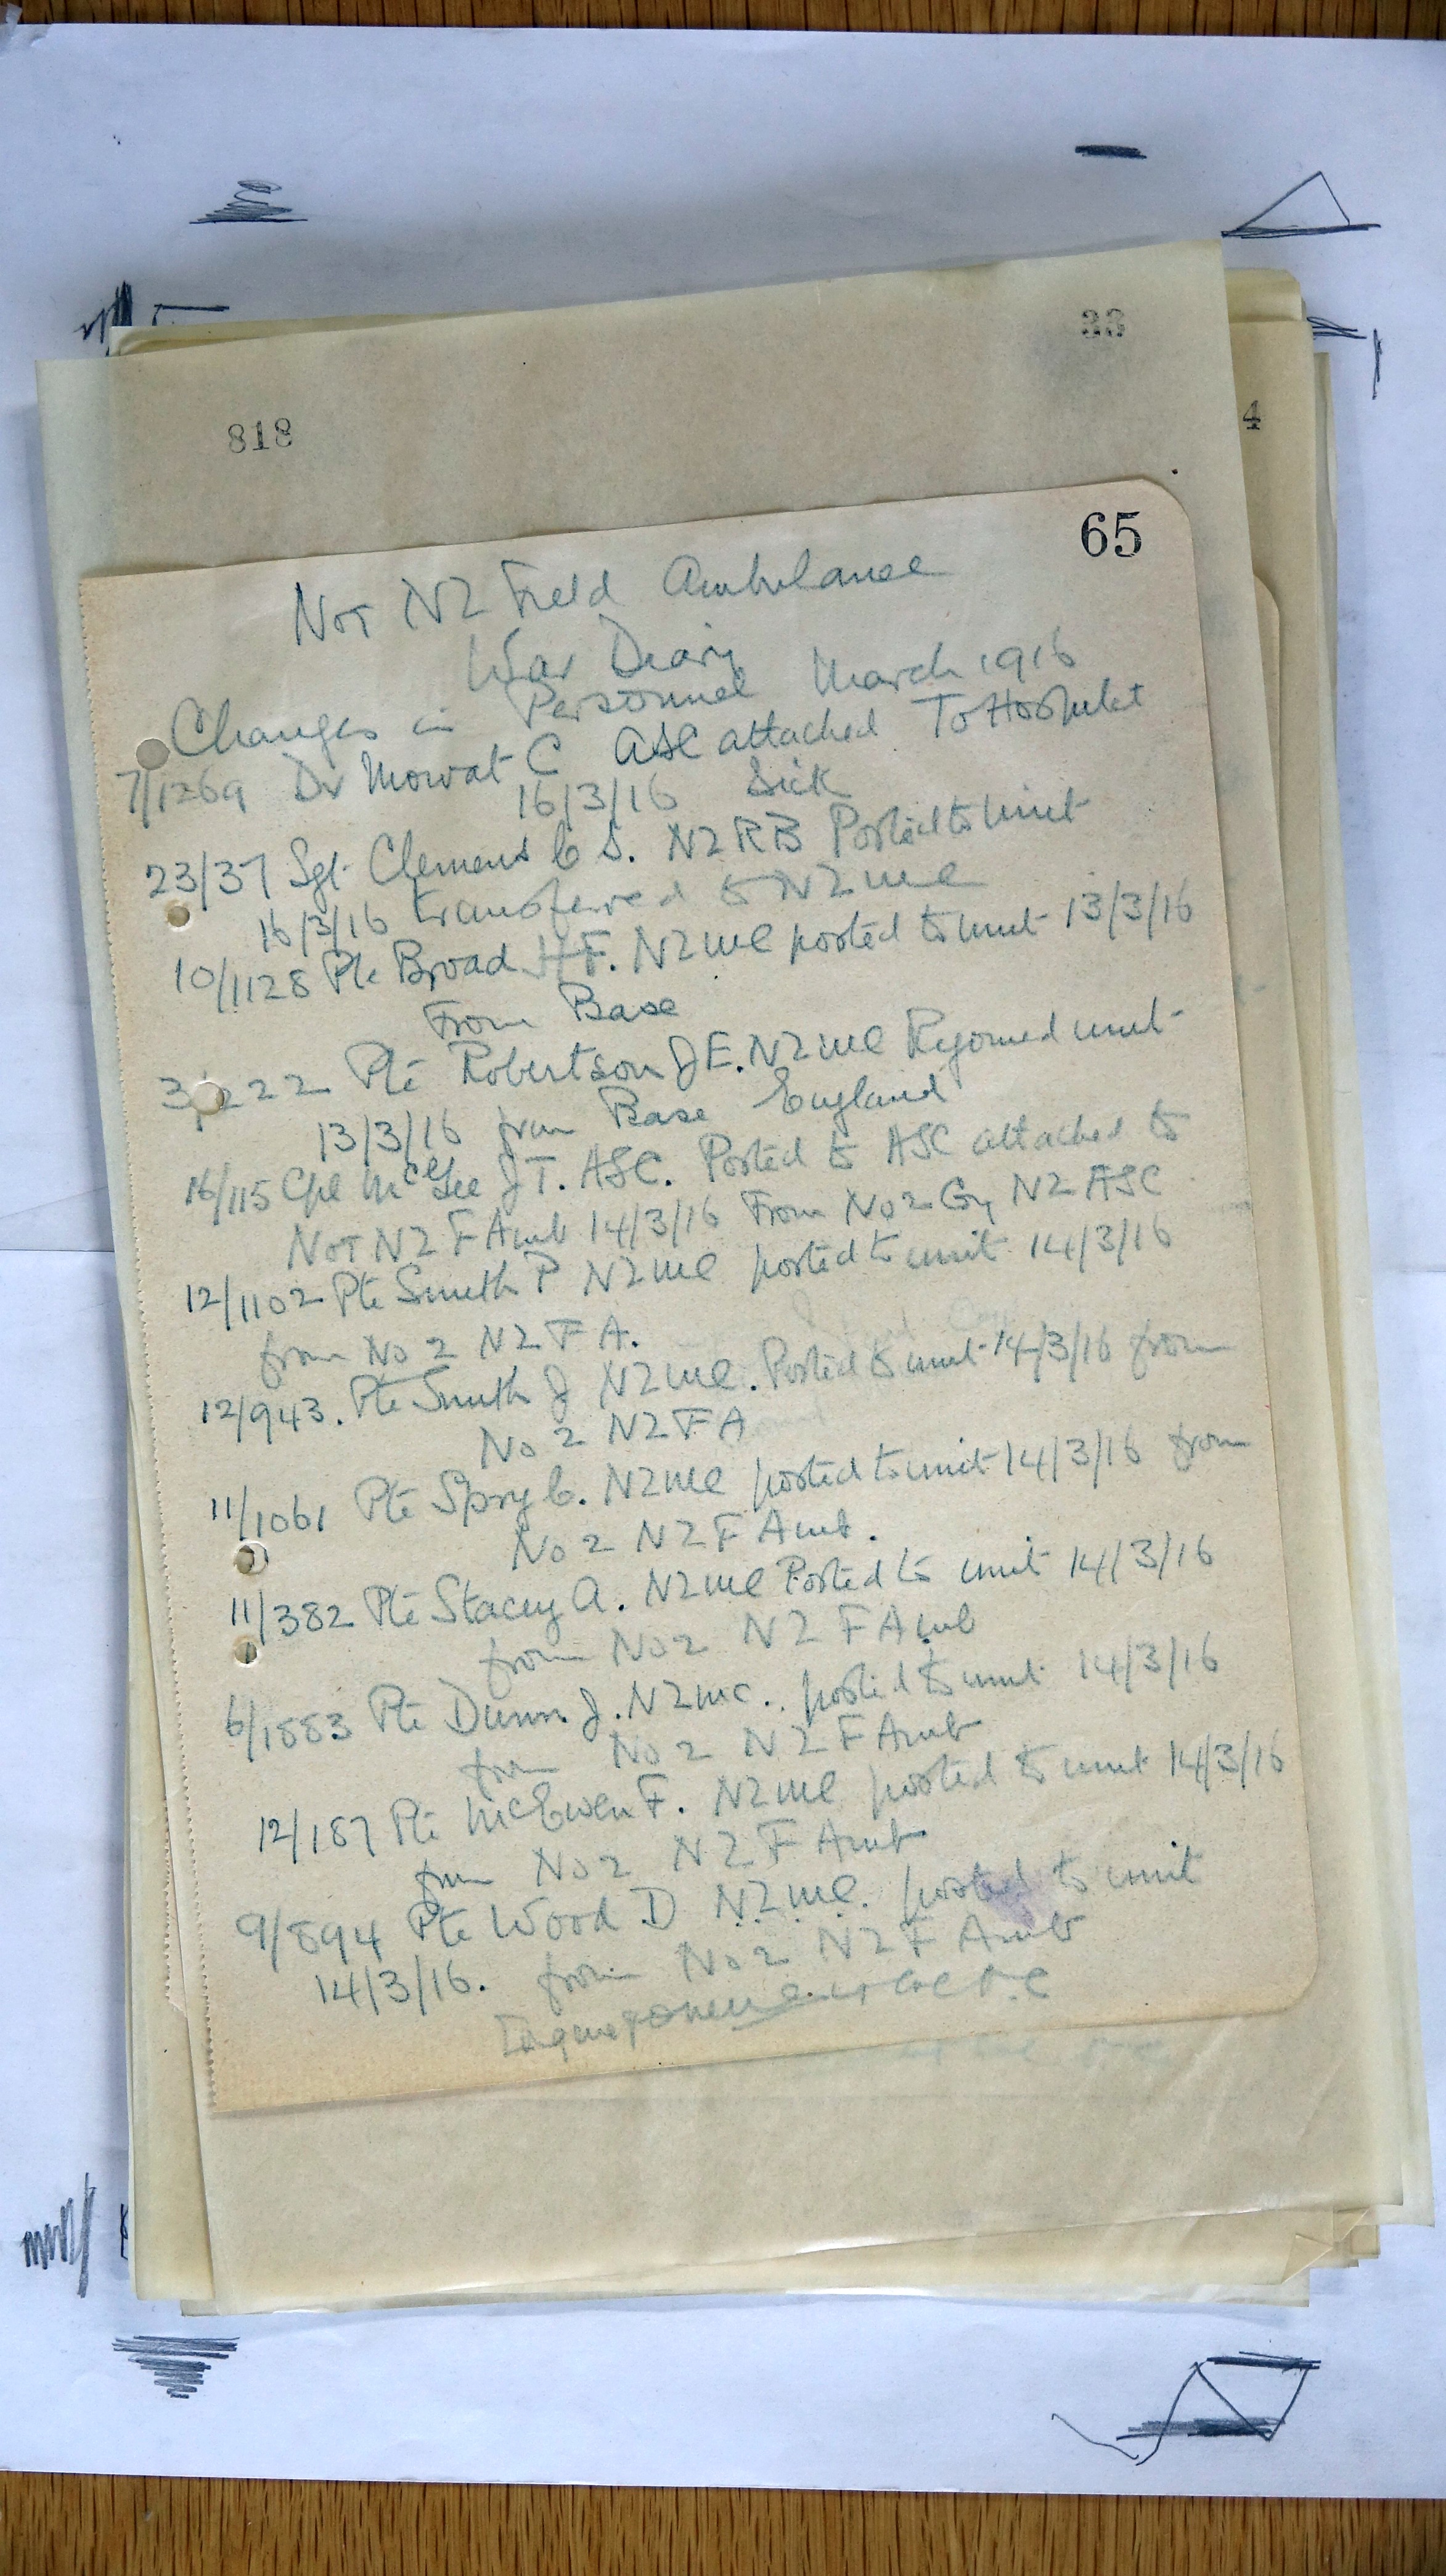 33
818
4
65
No1 NZ Field Ambulance
War Diary
Changes in Personnel March 1916
7/1269 Dr Mowat C ASC attached To Hospital
16/3/16 Sick
23/37 Sgt Clemens C S. NZRB Posted to Unit
16/3/16 transferred to NZMC
10/1128 Pte Broad H F. NZMC posted to unit 13/3/16
From Base
3/222 Pte Robertson J E. NZMC Rejoined unit
13/3/16 from Base England
16/115 Cpl McGee J T. ASC. Posted to ASC attached to
No1 NZ F Amb 14/3/16 From No 2 Coy NZ ASC
12/1102 Pte Smith P NZMC posted to unit 14/3/16
from No 2 NZ F A.
12/943. Pte Smith J NZMC. Posted to unit 14/3/16 from
No 2 NZ F A
11/1061 Pte Spry C. NZMC posted to unit 14/3/16 from
No 2 NZ F Amb.
11/382 Pte Stacey A. NZMC Posted to unit 14/3/16
from No 2 NZ F Amb
6/1883 Pte Dunn J. NZMC. posted to unit 14/3/16
from No 2 NZ F Amb
12/187 Pte McEwen F. NZMC posted to unit 14/3/16
from No 2 NZ F Amb
9/894 Pte Wood D NZMC. posted to unit
14/3/16. from No 2 NZ F Amb